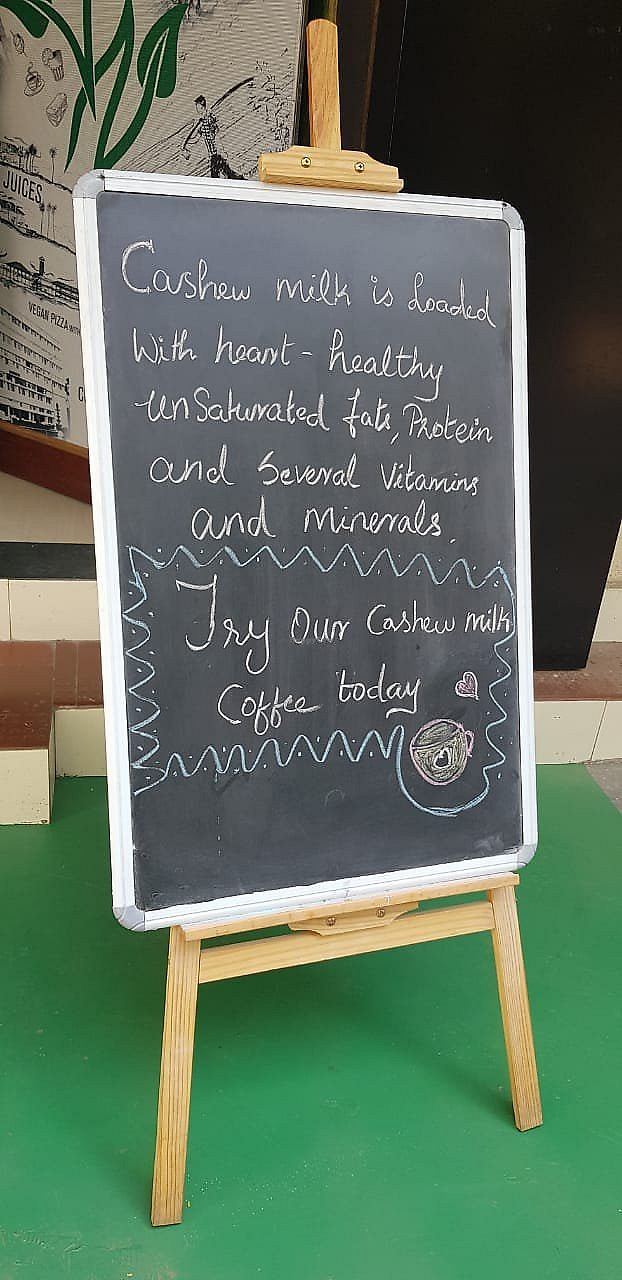 JUICES
VEGAN PIZZA WITH
Cashew milk is loaded
With heart - healthy
unSaturated fats, Protein
and Several Vitamins
and minerals.
Try Our Cashew milk
Coffee today